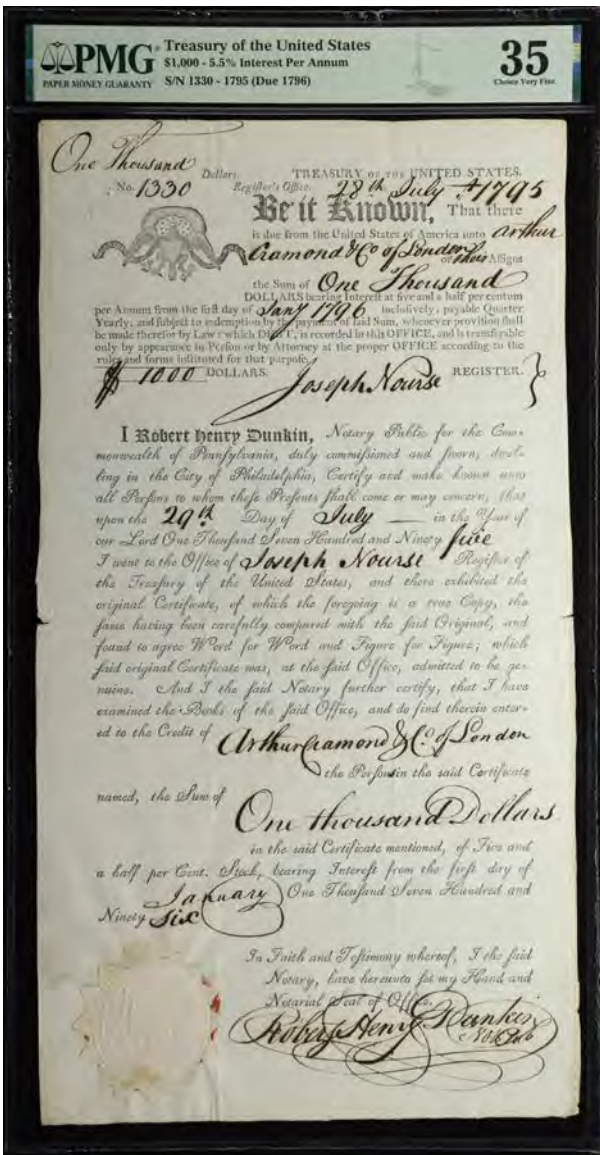 PMG
PAPER MONEY GUARANTY
Treasury of the United States
$1,000 - 5.5% Interest Per Annum
S/N 1330 - 1795 (Due 1796)
35
Choice Very Fine
One Thousand Dollars.
TREASURY OF THE UNITED STATES.
No. 1330 Register's Office. 28th July 1795
Be it Known, That there
is due from the United States of America unto Arthur
Cramond & Co of London or their Assigns
the Sum of One Thousand
DOLLARS bearing Interest at five and a half per centum
per Annum from the first day of Jany 1796 inclusively, payable Quarter
Yearly, and subject to redemption by the payment of said Sum, whenever provision shall
be made therefor by Law: which DEBT, is recorded in this OFFICE, and is transferable
only by appearance in Person or by Attorney at the proper OFFICE according to the
rules and forms instituted for that purpose.
$ 1000 DOLLARS. Joseph Nourse REGISTER.
I Robert Henry Dunkin, Notary Public for the Com-
monwealth of Pennsylvania, duly commissioned and sworn, dwel-
ling in the City of Philadelphia, Certify and make known unto
all Persons to whom these Presents shall come or may concern, that
upon the 29th Day of July in the Year of
our Lord One Thousand Seven Hundred and Ninety five
I went to the Office of Joseph Nourse Register of
the Treasury of the United States, and there exhibited the
original Certificate, of which the foregoing is a true Copy, the
same having been carefully compared with the said Original, and
found to agree Word for Word and Figure for Figure; which
said original Certificate was, at the said Office, admitted to be ge-
nuine. And I the said Notary further certify, that I have
examined the Books of the said Office, and do find therein enter-
ed to the Credit of Arthur Cramond & Co. of London
the Persons in the said Certificate
named, the Sum of
One thousand Dollars
in the said Certificate mentioned, of Five and
a half per Cent. Stock, bearing Interest from the first day of
January One Thousand Seven Hundred and
Ninety Six
In Faith and Testimony whereof, I the said
Notary, have hereunto set my Hand and
Notarial Seal of Office.
Robert Henry Dunkin
Not. Pub